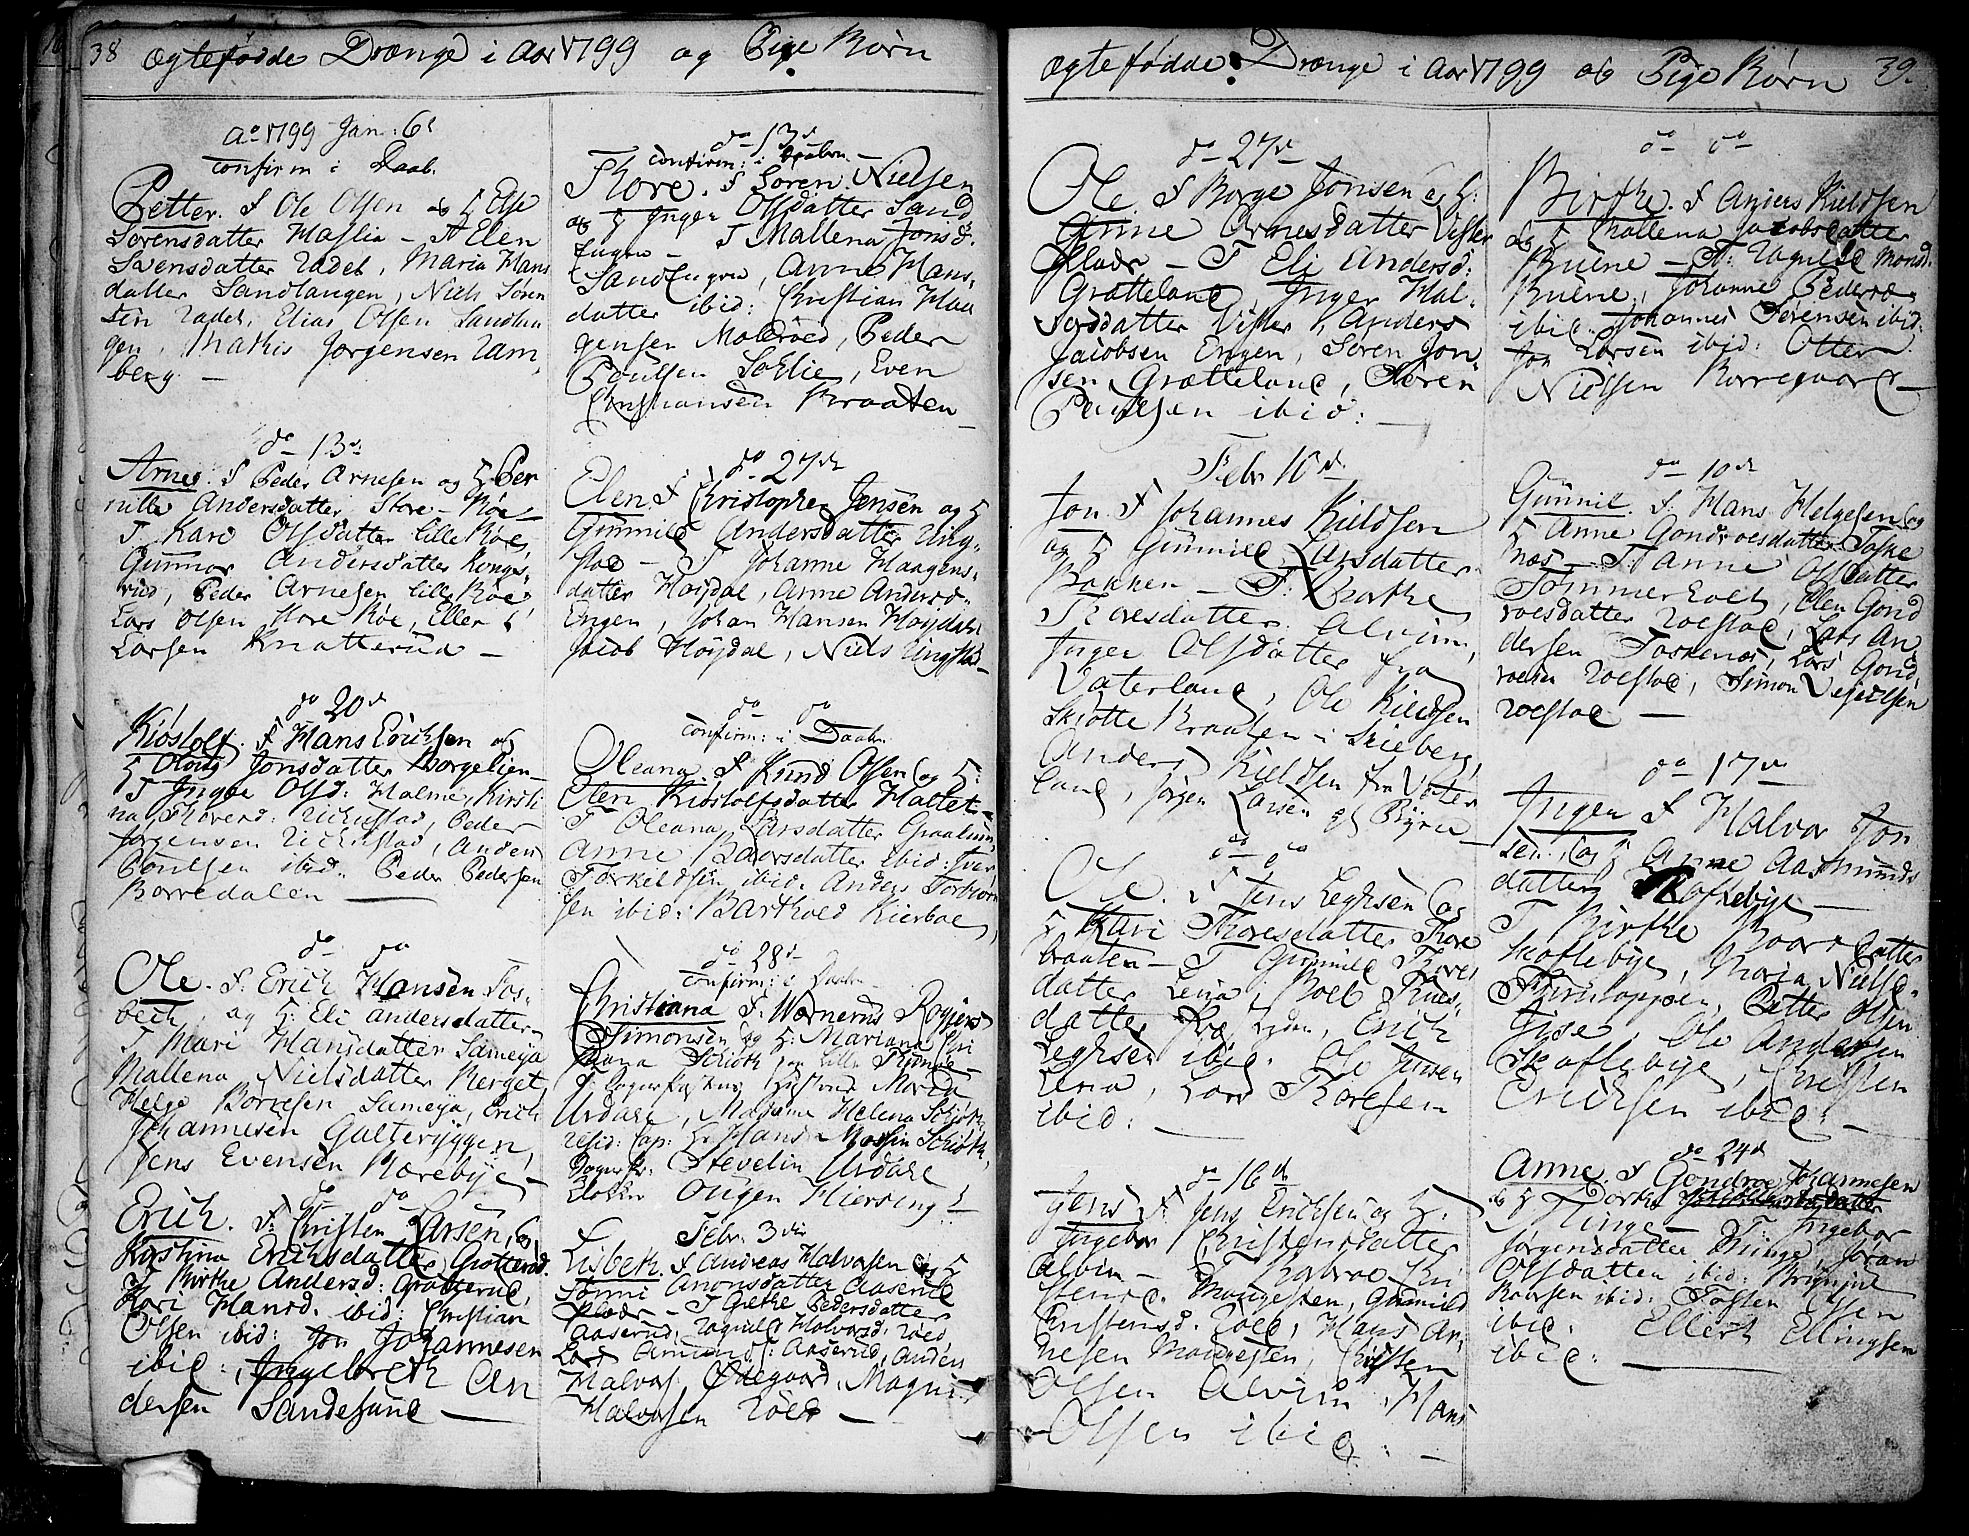 38 Ægtefødde Drænge i Aar 1799 og Pige Børn
Ao 1799 Jan: 6t
confirm i Daab.
Petter. F Ole Olsen og H Else
Sørensdatter Haslie - T Elen
Svensdatter Radet, Maria Hans
datter Sandtangen, Niels Søren
sen Radet, Elias Olsen Sandtan
gen, Mathis Jørgensen Ram
berg. -
do 13d
Arne. F Peder Arnesen og H Per
nille Andersdatter Store-Røe -
T Kari Olsdatter lille Røe,
Gunnor Andersdatter Kongs
rud, Peder Arnesen lille Røe,
Lars Olsen Store Røe, Eller
Larsen Knatterud -
do 20d
Kiøstolf. F Hans Erichsen og
H Jonsdatter Borgelien -
T Inger Olsd: Halme, Kirsti
na Thoresd: Peder
Jørgensen Anders
Poulsen ibid. Peder Pedersen
Borredalen -
do do
Ole. F. Erich Hansen Tos-
bech, og H: Eli Andersdatter -
T Mari Hansdatter Sameya
Mallena Nielsdatter Berget,
Helge Borresen Sameya, Erich
Johannesen Galteryggen,
Jens Evensen Nærebye -
do do
Erich. F. Christen Larsen, og
Kirstina Erichsdatter Grotterød.
T Birthe Andersd: Grotterud,
Kari Hansd. ibid: Christian
Olsen ibid: Jon Johannesen
ibid:, Ingebreth An
dersen Sandesund -
do 13d
confirm: i Daaben -
Thore. F Søren Nielsen
og H Inger Olsdatter Sand
Engen - T Mallena Jonsd.
Sandengen, Anne Hans-
datter ibid: Christian Haa
gensen Molerød, Peder
Poulsen Solie, Even
Christiansen Braaten -
do 27de
Elen. F Christopher Jensen og H
Gunnild Andersdatter Ring-
stad - T Johanne Haagens-
datter Høydal, Anne Andersd-
Engen, Johan Hansen Høydal
Jacob Høydal, Niels Ringstad -
do do
confirm: i Daab.
Oleana. F. Knud Olsen og H:
Elen Kiøstolfsdatter Hattet -
T Oleana Larsdatter Graalum,
Anne Baarsdatter ibid: Iver
Torkildsen ibid. Anders Torbiørn
sen ibid: Barthold Kierboe,
do 28d
confirm: i Daab.
Christiana F. Wernerus Rogiers
Simonsen og H: Mariana Chri
stiana Schiøth, og lille Tune -
T Sognepræstens Hustrue Maria
Urdahl, Madame Helena Schiøth,
resid: Cap: Hr Hans Mossin Schiøth,
Sognepr: Stevelin Urdahl
Klokker Ougen Hiersing -
Febr. 3die
Lisbeth. F Andreas Halvorsen og H
Sønni Amonsdatter Aaserud
Plads - T Grethe Pedersdatter
Aaserud, Ragnild Halvorsd: Røed
Lars Amunds: Aaserud, Anders
Halvors. Ødegaard, Magni
Halvorsen Røed -
Ægtefødde Drænge i Aar 1799 og Pige Børn 39.
do 27d
Ole F Borge Jonsen og H:
Anne Ormesdatter Vister
Plads - T Eli Andersd:
Gratteland, Inger Hal-
vorsdatter Vister, Anders
Jacobsen Engen, Søren Jon
sen Grætteland, Søren
Paulsen ibid: -
Febr 10d
Jon. F Johannes Kieldsen
og H Gunnild Larsdatter
Bakken - T: Birthe
Thoresdatter Alvim,
Inger Olsdatter fra
Vaterland, Ole Kieldsen
Skiøtte Braaten i Skieberg,
Anders Kieldsen fra Vater
land, Jørgen Larsen af Byen
do do
Ole. F Jens Leghsen og
H Kari Thoresdatter Thore
braaten - T Gunnild Thores
datter Lena, Boel
datter Erich
Leghsen ibid. Ole Jensen
Lena, Lars Thoresen
ibid: -
do 16de
Jens F. Jens Erichsen og H.
Ingebor Christensdatter
Alvim - T Chri
stensd. Maugesten, Gunnild
Christensd. Røed, Hans Ar,
nesen Maugesten, Christen
Olsen Alvim, Hans
Olsen ibid: -
do do
Birthe. F Anders Kieldsen
og H Mallena Jacobsdatter
Buene - T: Ragnild Monsd:
Buene, Johanne Pedersd-
ibid. Johannes Sørensen ibid.
Jon Larsen ibid: Otter
Nielsen Borregaard -
do 10de
Gunnil. F. Hans Helgesen og
H Anne Gondrosdatter Toske
næs - T: Anne Olsdatter
Tommerholt, Elen Gond
roesdatter Rolstad, Lars An
dersen Toskenæs, Lars Gond,
roesen Rolstad, Simon Vegelsen
Rolstad -
do 17de
Ingen F Halvor Jon
sen, og H Anne Aasmunds
datter Skoftebye -
T Birthe Boars datter
Skoftebye, Maria Nielsd-
Petter Olsen
Ole Andersen
Skoftebye, Christen
Erichsen ibid: -
do 24d
Anne. F Gondroe Johannesen
og H Dorthe
Minge - T: Ingebor
Jørgensdatter Minge, Jøran
Olsdatter ibid: Brynjul
Baarsen ibid: Tosten Olsen
ibid. Ellert Ellingsen
ibid: -